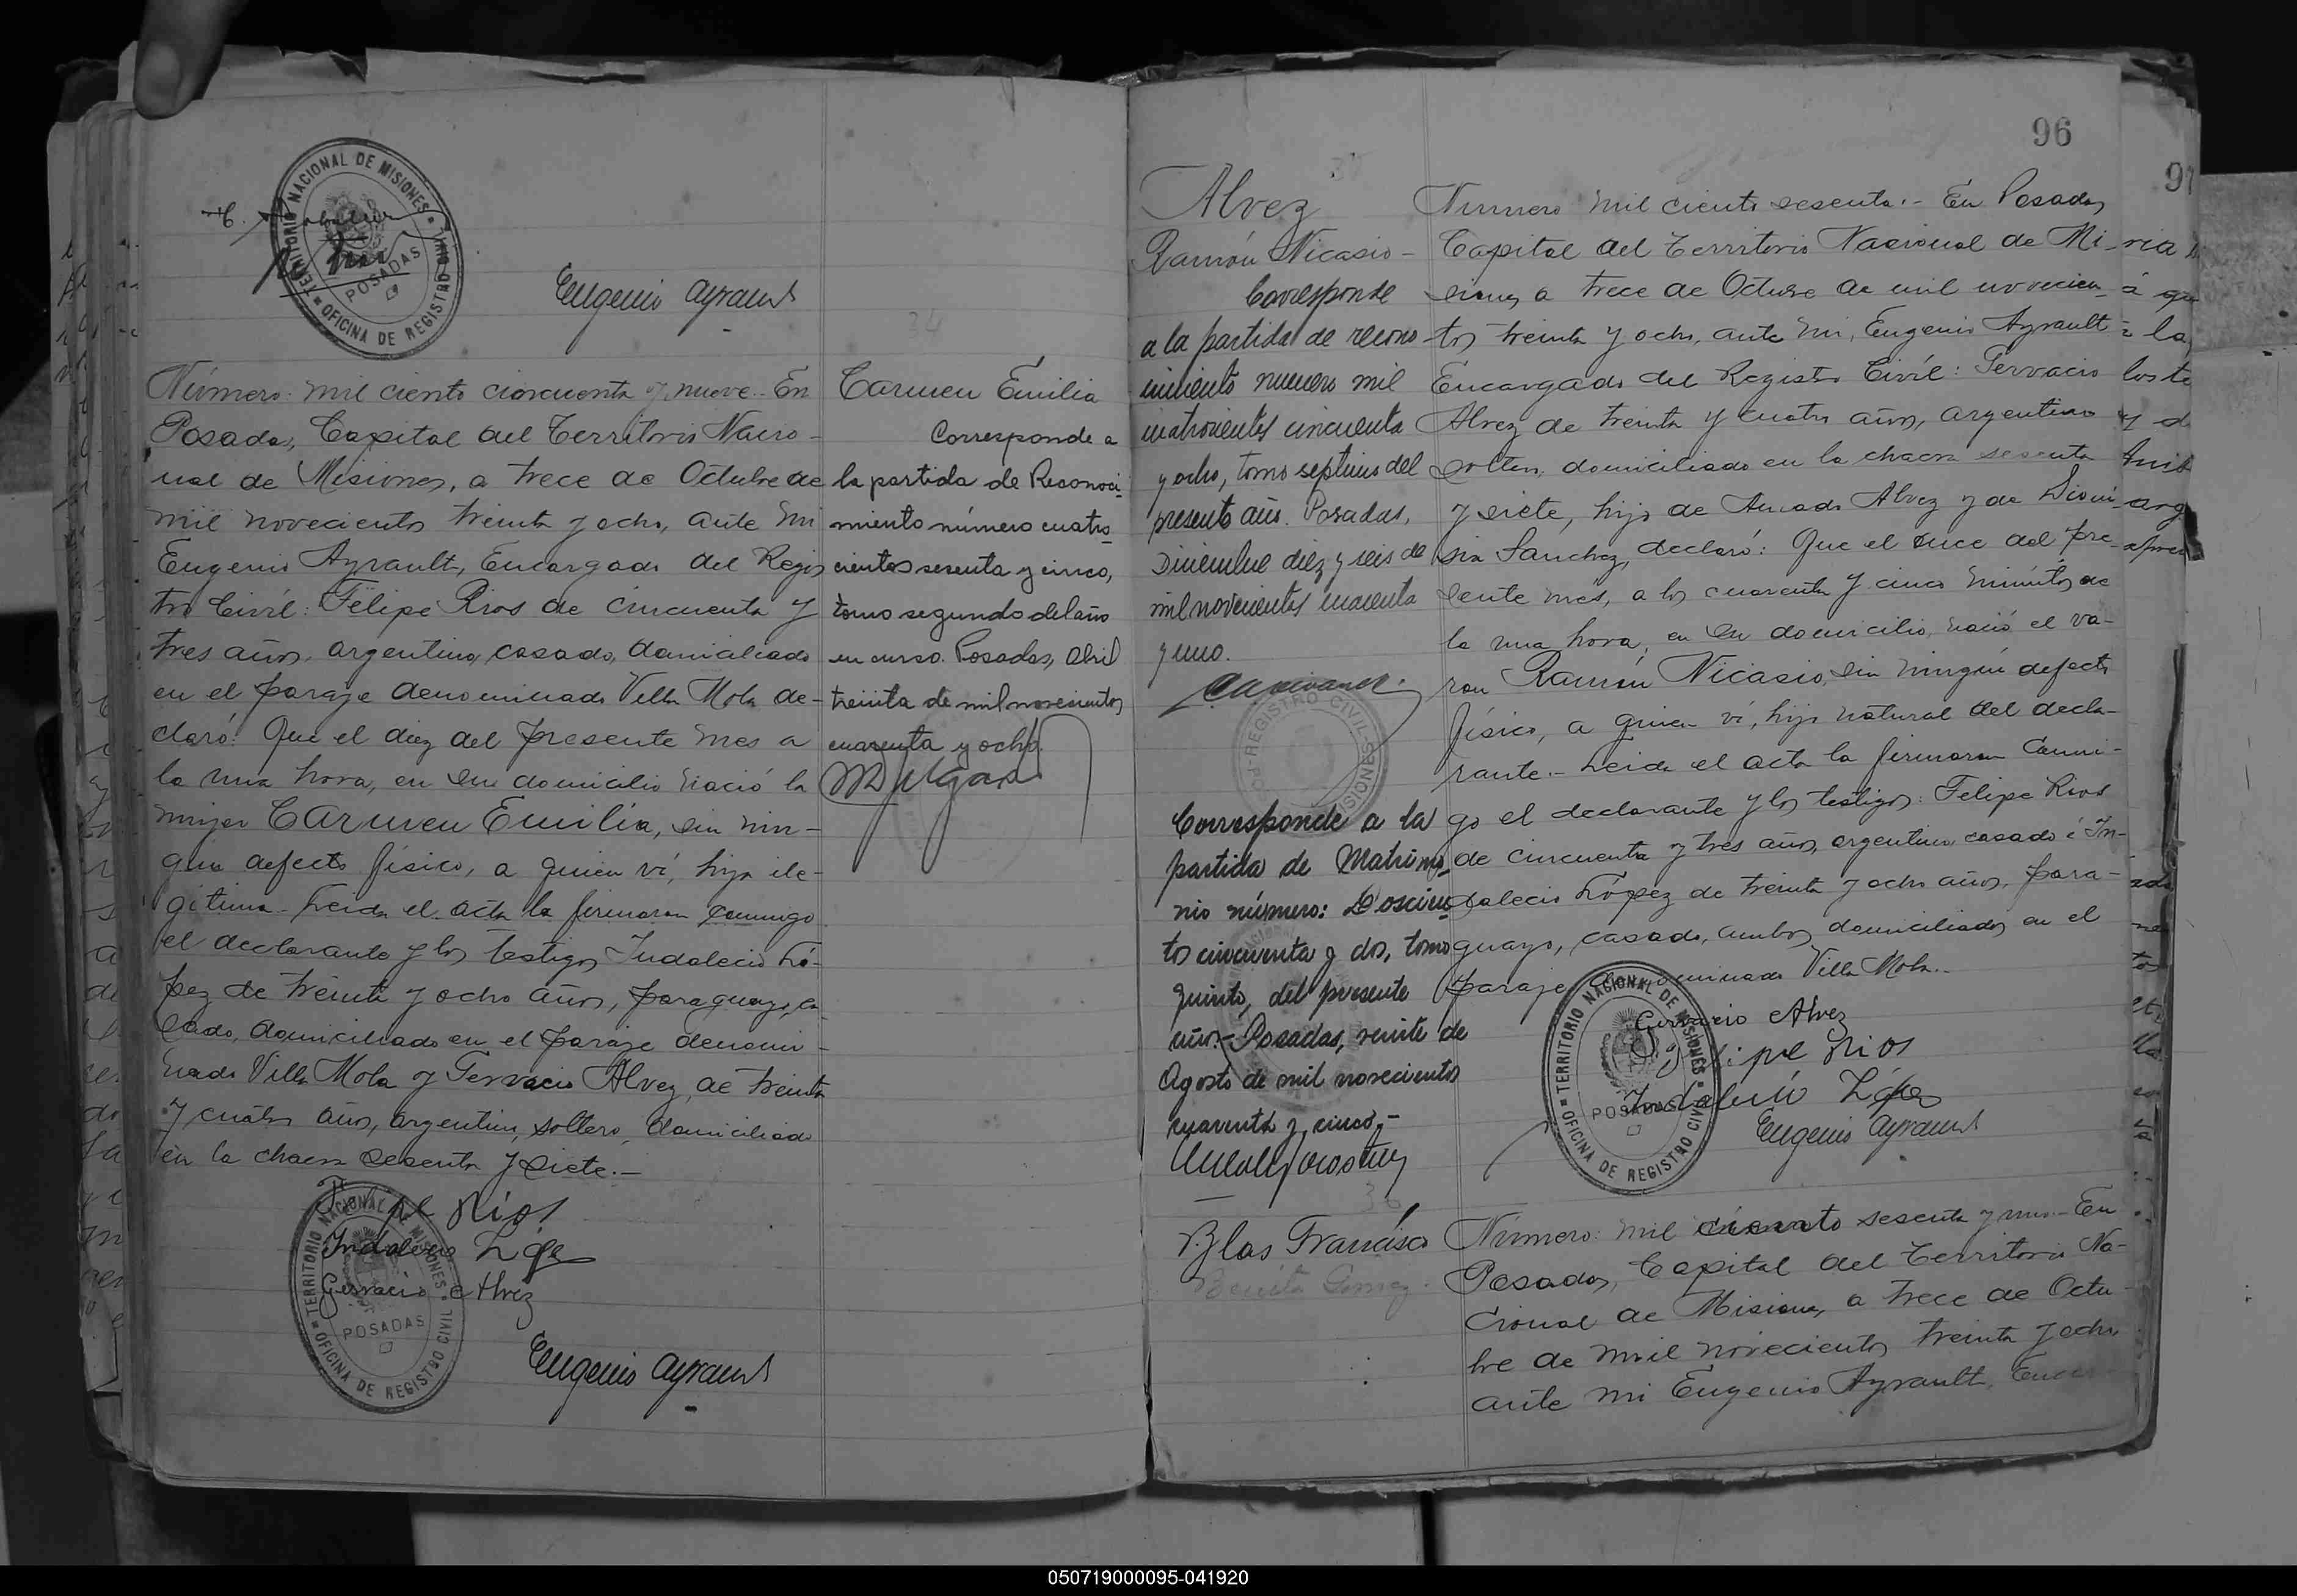 TERRITORIO NACIONAL DE MISIONES
OFICINA DE REGISTRO CIVIL
POSADAS
Eugenio Ayrault
34
Número: mil ciento cincuenta y nueve.- En
Posadas, Capital del Territorio Nacio-
nal de Misiones, a trece de Octubre de
mil novecientos treinta y ocho, ante mi
Eugenio Ayrault, Encargado del Regis
tro Civil: Felipe Rios de cincuenta y
tres años, argentino, casado, domiciliado
en el paraje denominado Villa Mola de-
claró: Que el diez del presente mes a
la una hora, en su domicilio nació la
mujer Carmen Emilia, sin nin-
gún defecto físico, a quien ví, hija ile-
gitima.- Leida el acta la firmaron conmigo
el declarante y los testigos Indalecio Ló-
pez de treinta y ocho años, paraguayo, ca-
sado, domiciliado en el paraje denomi-
nado Villa Mola y Gervacio Alvez, de treinta
y cuatro años, argentino, soltero, domiciliado
en la chacra sesenta y siete.-
Felipe Rios
Indalecio López
Gervacio Alvez
TERRITORIO NACIONAL DE MISIONES
OFICINA DE REGISTRO CIVIL
POSADAS
Eugenio Ayrault
Carmen Emilia
Corresponde a
la partida de Reconoci-
miento número cuatro-
cientos sesenta y cinco,
tomo segundo del año
en curso. Posadas, Abril
treinta de mil novecientos
cuarenta y ocho.
96
97
Alvez
Ramón Nicasio -
Corresponde
a la partida de recono
cimiento numero mil
cuatrocientos cincuenta
y ocho, tomo septimo del
presente año. Posadas,
Diciembre diez y seis de
mil novecientos cuarenta
y uno.
REGISTRO CIVIL
MISIONES
Corresponde a la
partida de Matrimo-
nio número: Doscien-
tos cincuenta y dos, tomo
quinto, del presente
año.- Posadas, veinte de
Agosto de mil novecientos
cuarenta y cinco.-
Numero mil ciento sesenta.- En Posadas
Capital del Territorio Nacional de Mi-
siones, a trece de Octubre de mil novecien-
tos treinta y ocho, ante mi, Eugenio Ayrault
Encargado del Registro Civil: Gervacio
Alvez de treinta y cuatro años, argentino
soltero, domiciliado en la chacra sesenta
y siete, hijo de Amado Alvez y de Dioni-
sia Sanchez, declaró: Que el once del pre-
sente mes, a los cuarenta y cinco minutos de
la una hora, en su domicilio, nació el va-
ron Ramón Nicasio, sin ningún defecto
físico, a quien ví, hijo natural del decla-
rante.- Leida el acta la firmaron conmi-
go el declarante y los testigos: Felipe Rios
de cincuenta y tres años, argentino casado é In-
dalecio López de treinta y ocho años, para-
guayo, casado, ambos domiciliados en el
paraje denominado Villa Mola.-
Gervacio Alvez
Felipe Rios
Indalecio López
Eugenio Ayrault
TERRITORIO NACIONAL DE MISIONES
OFICINA DE REGISTRO CIVIL
POSADAS
36
Blas Francisco
Benita Gomez
Número: mil ciento sesenta y uno.- En
Posadas, Capital del Territorio Na-
cional de Misiones, a trece de Octu-
bre de mil novecientos treinta y ocho
ante mi Eugenio Ayrault,
050719000095-041920